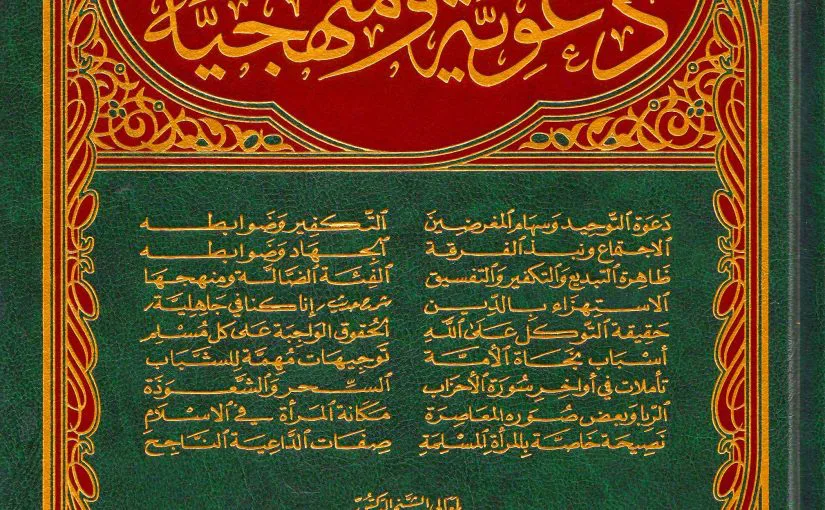 دَعَوِيَّة وَمَنْهَجِيَّة
دَعْوَة التَّوحِيد وَسِهَام المُغرِضِينَ
الاجتِمَاع وَنَبذ الفُرقَة
ظَاهِرَة التَّبدِيع وَالتَّكفِير وَالتَّفسِيق
الاستِهزَاء بِالدِّين
حَقِيقَة التَّوَكّل عَلَى اللَّهِ
أسبَاب نَجَاة الأُمَّة
تأمّلات في أواخِر سُورَة الأحزَاب
الرِّبا وَبَعض صُوَره المعَاصِرَة
نَصِيحَة خَاصَّة بِالمَرأَة المُسْلِمَةِ
التَّكفِير وَضَوَابِطه
الجِهَاد وَضَوَابِطه
الفِئَة الضَّالَّة وَمَنهَجهَا
شرح حديث إنا كنا في جَاهِلِيَّة
الحُقوق الوَاجِبَة عَلَى كل مُسْلِم
تَوجِيهَات مُهِمَّة لِلشَّبَاب
السِّحر وَالشَّعْوَذَة
مَكَانَة المَرأَة في الاسْلَام
صِفَات الدَّاعِيَة النَّاجِح
لمعالي الشيخ الدكتور